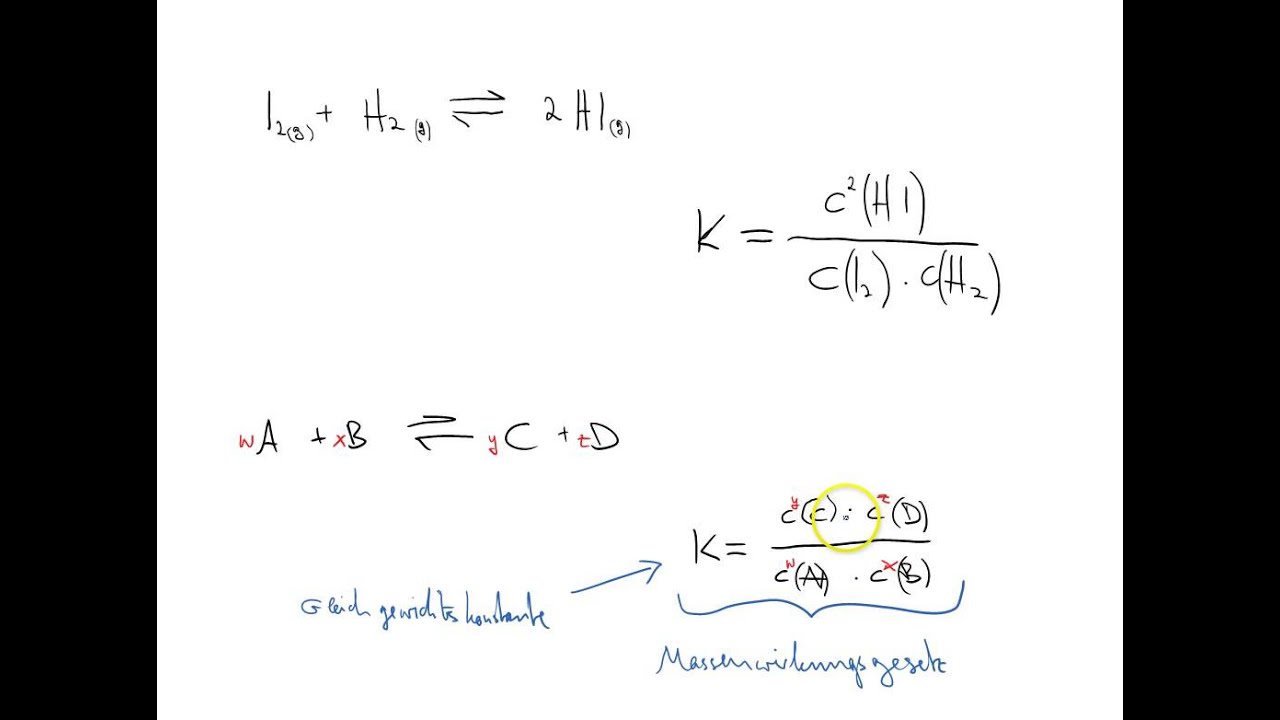 I₂(g) + H₂(g) ⇌ 2 HI(g)
K = c²(HI) / c(I₂) · c(H₂)
wA + xB ⇌ yC + zD
K = cʸ(C) · cᶻ(D) / cʷ(A) · cˣ(B)
Gleichgewichtskonstante
Massenwirkungsgesetz